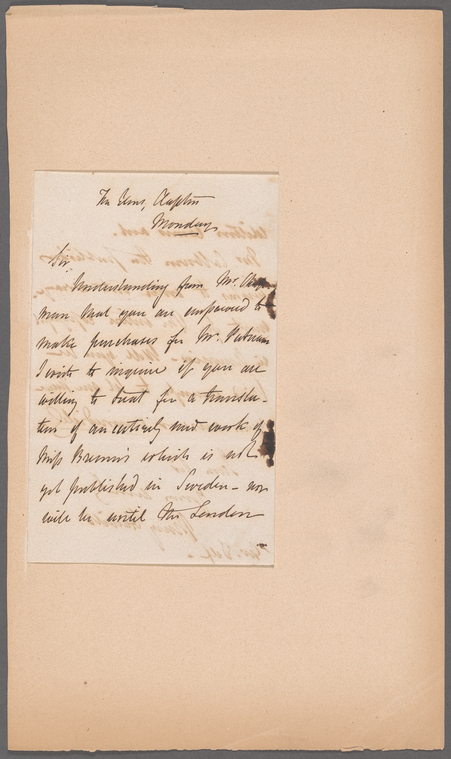 The Elms, Clapton
Monday
Sir
Understanding from Mr. Chap-
man that you are empowered to
make purchases for Mr. Putnam
I wish to inquire if you are
willing to treat for a transla-
tion of an entirely new work of
Miss Bremer's which is not
yet published in Sweden - nor
will be until the London